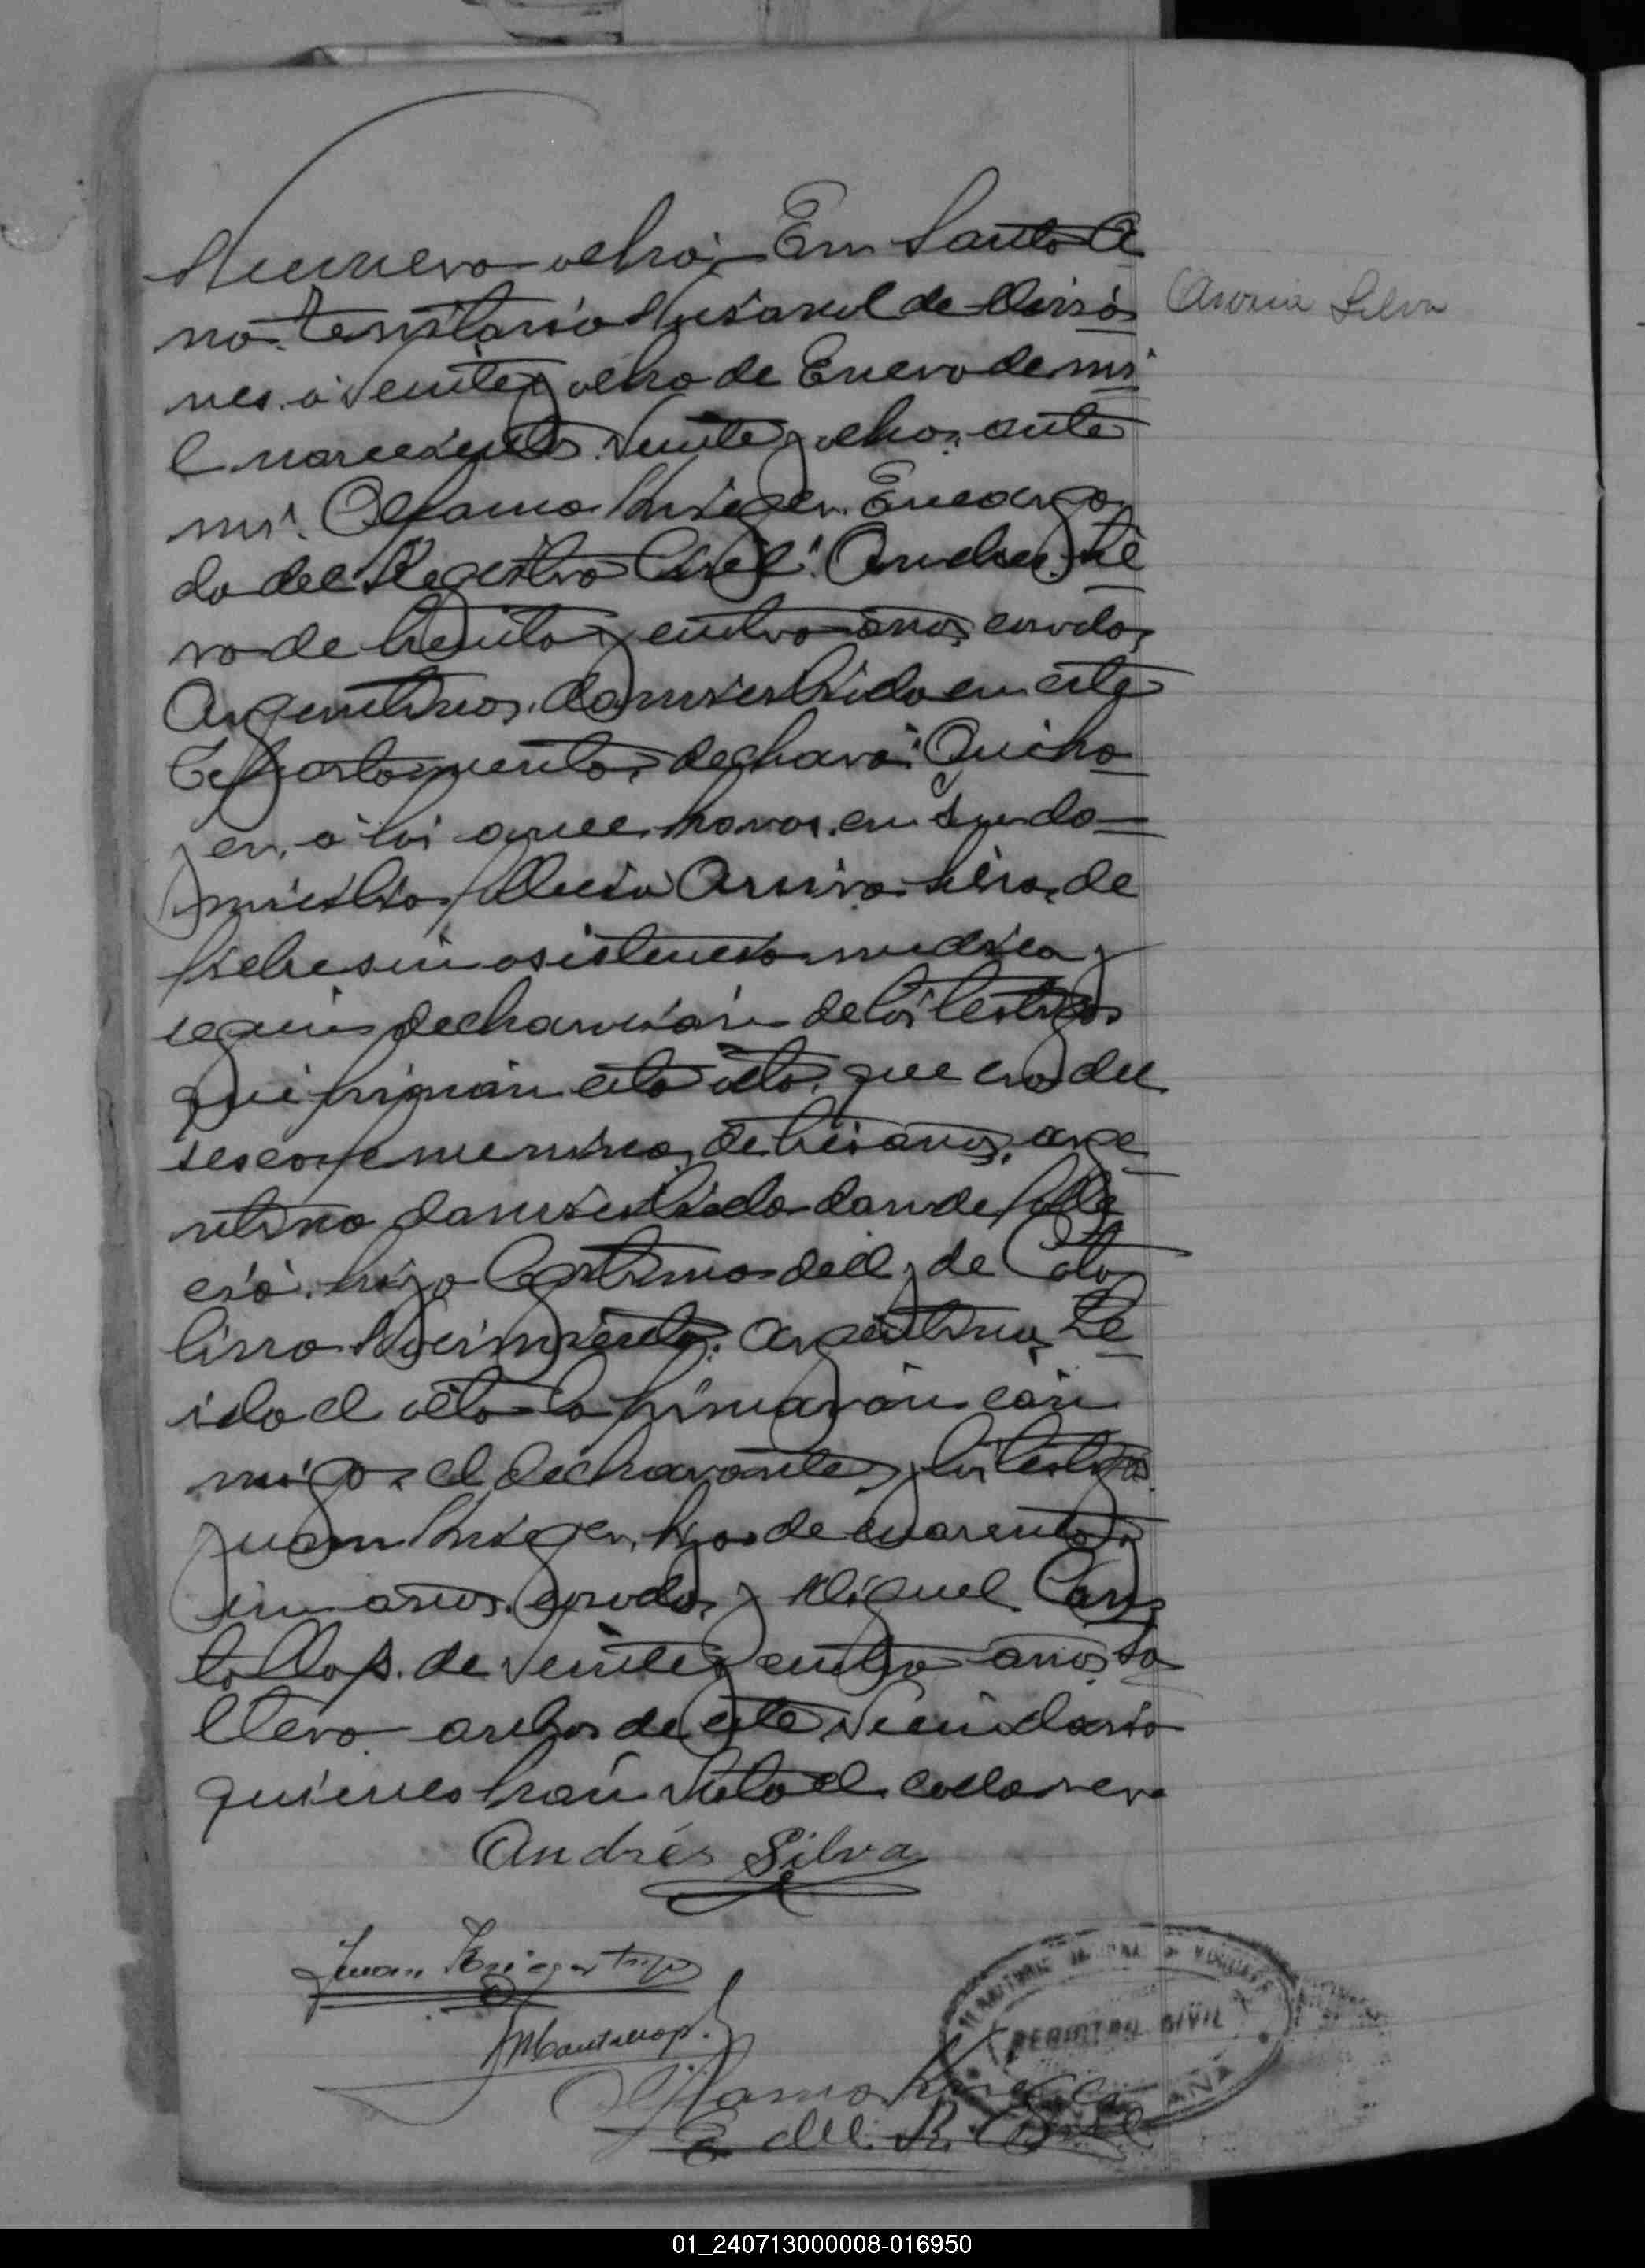 Numero ocho, En Santa A
na, territorio Nacional de Misio
nes. á veinte y ocho de Enero de mi
l novecientos veinte y ocho, ante
mi. Krieger. Encarga
do del Registro Civil. Andres Sil
va de treinta y cuatro años casado,
Argentino, domiciliado en este
Departamento, declaró: Que ho
y, á las once horas, en su do
micilio, falleció Silva, de
fiebre sin asistencia medica y
segun declaracion de los testigos
que firman esta acta, que era del
sexo femenino, de tres años, arge
ntina domiciliada donde falle
ció. hija legitima de el y de Cata
lina argentina, Le
ida el acta la firmaron con
migo, el declarante y los testigos
Juan Krieger, hijo de cuarenta y
un años, casado, y Miguel Can
tallops. de veinte y cuatro años so
ltero ambos de este vecindario
quienes han visto el cadaver.
Andrés Silva
Juan Krieger hijo
MCantallops.
Krieger
E. del R. Civil
REGISTRO CIVIL
Silva
01_240713000008-016950